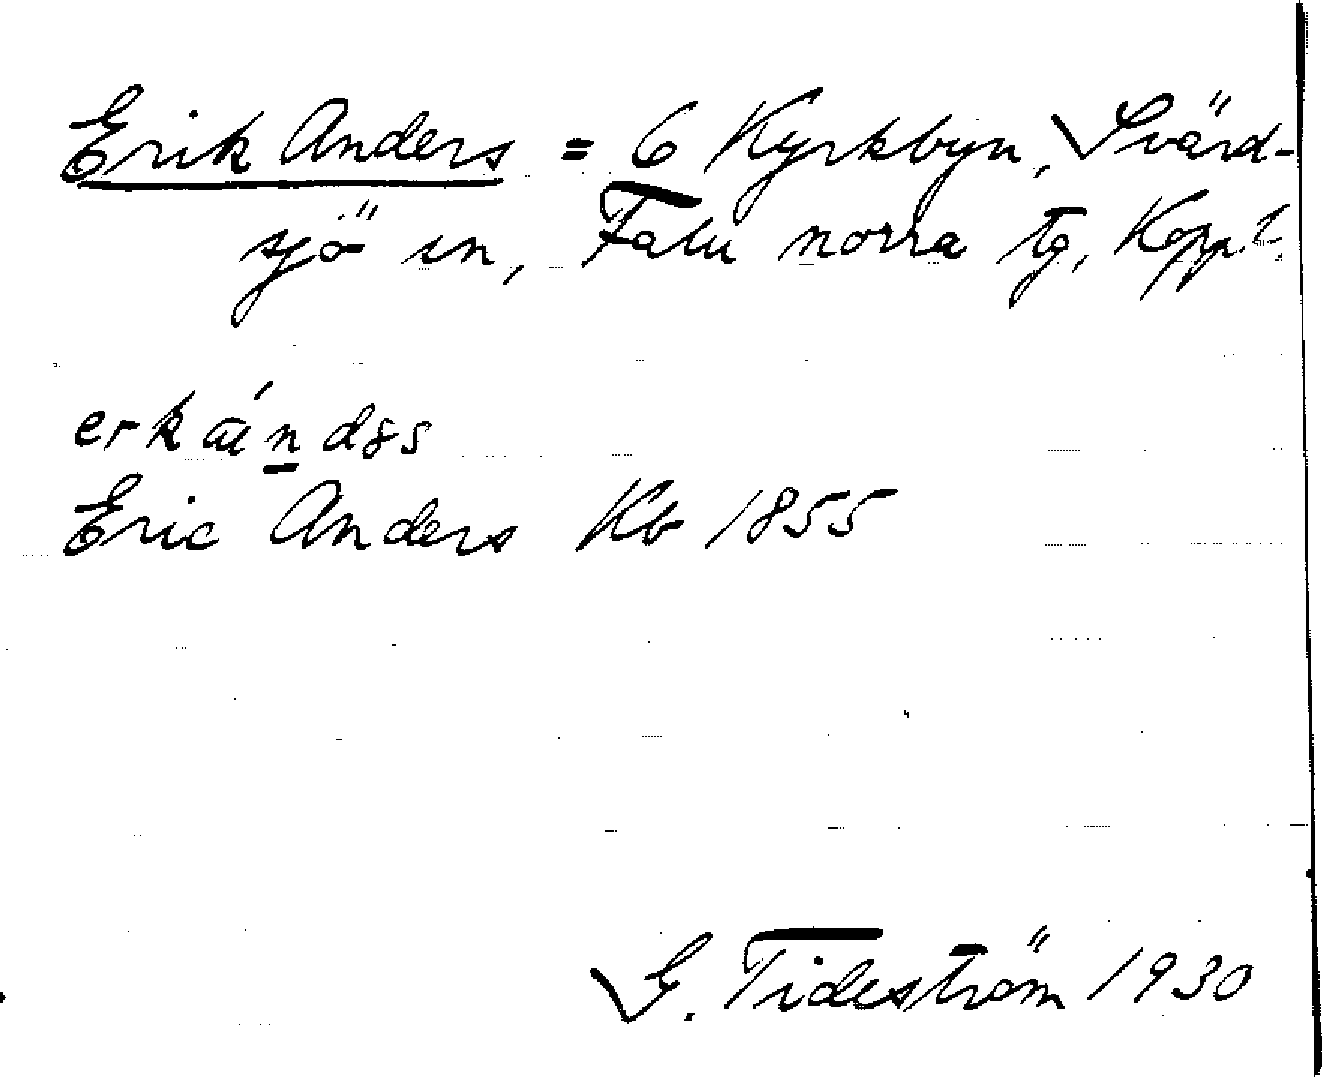 Erik Anders = 6 Kyrkbyn, Svärd-
sjö sn, Falu norra tg, Koppl.
erkǽnd8s
Eric Anders Kb 1855
G. Tideström 1930